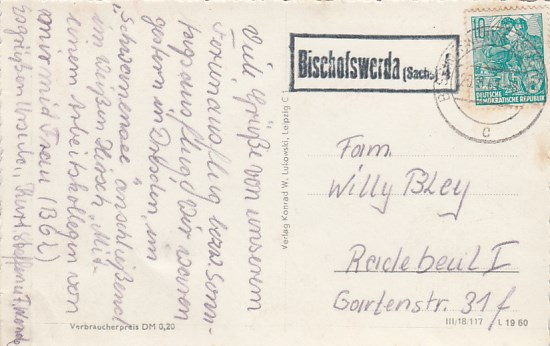 Viele Grüße von unserem
Ferienausflug bezw. Sonn-
tagsausflug! Wir waren
gestern in Dresden, im
"Schwanensee" anschließend
im Weißen Hirsch. Mit
einem Arbeitskollegen von
mir mit Frau (BGL)
Ursula, Kurt, Steffen u.
Verbraucherpreis DM 0,20
Verlag Konrad W. Lukowski, Leipzig C
Bischofswerda (Sachs) 4
10
DEUTSCHE
DEMOKRATISCHE REPUBLIK
c
Fam.
Willy Bley
Radebeul I
Gartenstr. 31f
III/18/117 L 19 60